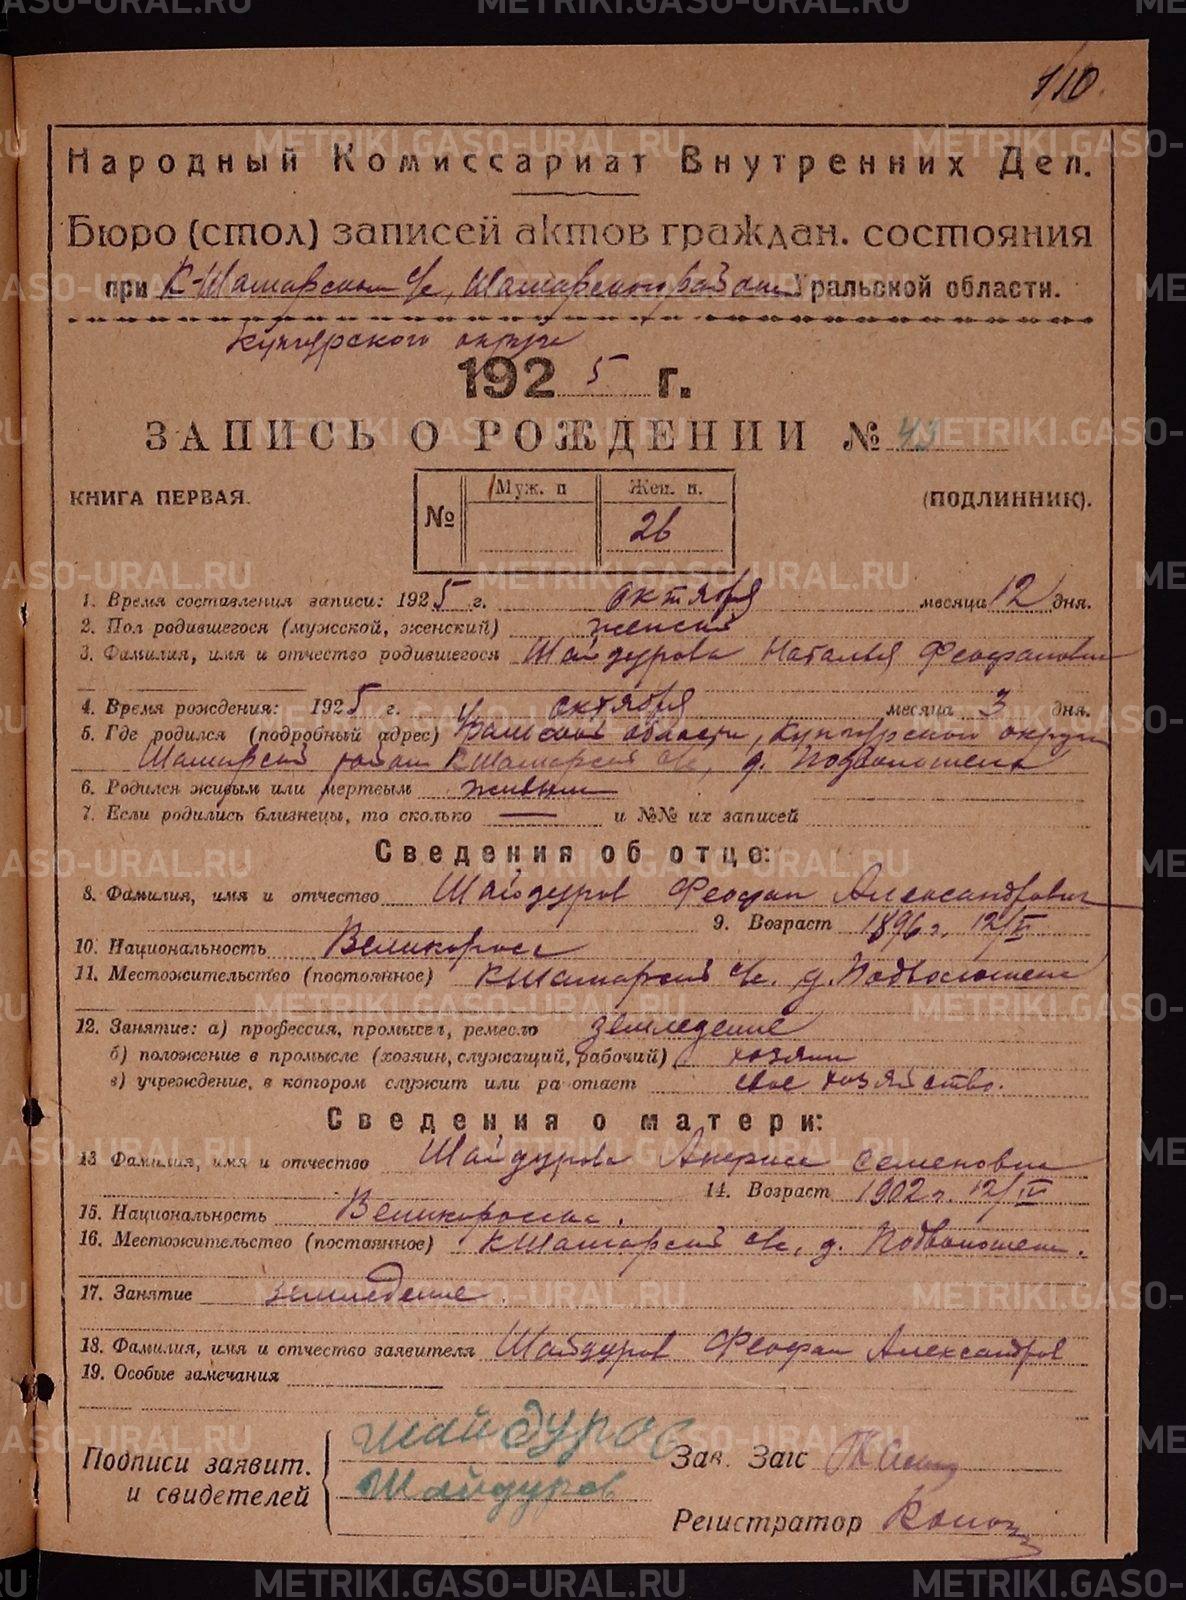 110.
Народный Комиссариат Внутренних Дел.
Бюро (стол) записей актов граждан. состояния
при К-Шамарском с/с, Шамарского района Уральской области.
Кунгурского округа
1925 г.
ЗАПИСЬ О РОЖДЕНИИ № 49
КНИГА ПЕРВАЯ. № Муж. п Жен. п. 26 (ПОДЛИННИК).
1. Время составления записи: 1925 г. октября месяца 12 дня.
2. Пол родившегося (мужской, женский) женский
3. Фамилия, имя и отчество родившегося Шайдурова Наталья Феофановна
4. Время рождения: 1925 г. октября месяца 3 дня.
5. Где родился (подробный адрес) Уральской области, Кунгурского округа
Шамарский район КШамарский с/с, д. Подволошена
6. Родился живым или мертвым живым
7. Если родились близнецы, то сколько — и №№ их записей
Сведения об отце:
8. Фамилия, имя и отчество Шайдуров Феофан Александрович
9. Возраст 1896 г. 12/V
10. Национальность Великоросс
11. Местожительство (постоянное) КШамарский с/с. д. Подволошена
12. Занятие: а) профессия, промысел, ремесло земледелие
б) положение в промысле (хозяин, служащий, рабочий) хозяин
в) учреждение, в котором служит или ра отает свое хозяйство.
Сведения о матери:
13 Фамилия, имя и отчество Шайдурова Анфиса Семеновна
14. Возраст 1902 г. 12/IV
15. Национальность Великоросска.
16. Местожительство (постоянное) КШамарский с/с, д. Подволошена.
17. Занятие земледелие.
18. Фамилия, имя и отчество заявителя Шайдуров Феофан Александров
19. Особые замечания
Подписи заявит. и свидетелей
шайдуров
Шайдуров
Зав. Загс
Регистратор
METRIKI.GASO-URAL.RU